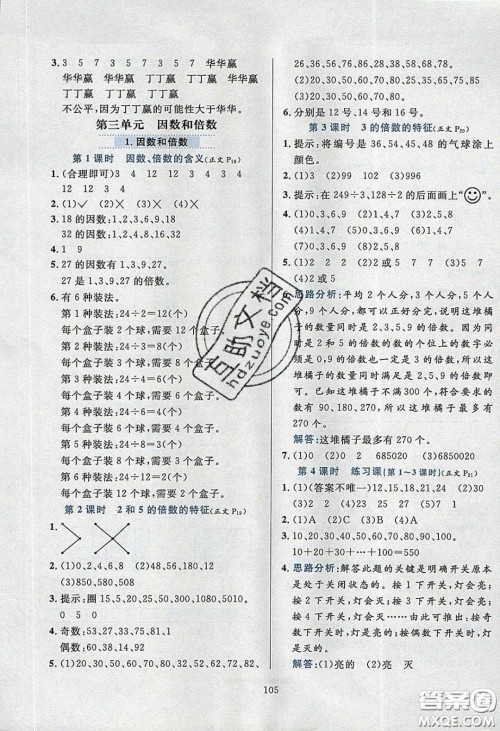 3. 3 5 7 3 5 7 3 5 7 华华赢
华华赢 华华赢 丁丁赢 丁丁赢
丁丁赢 丁丁赢 丁丁赢 丁丁赢
不公平,因为丁丁赢的可能性大于华华。
第三单元 因数和倍数
1.因数和倍数
第1课时 因数、倍数的含义(正文P₁₈)
1. (合理即可)3 4 12 12 3 4
12 3 4
2. (1)✓ (2)× (3)×
3. 18的因数:1,2,3,6,9,18
32的因数:1,2,4,8,16,32
4. 1 9
5. 27的因数有1,3,9,27。
27是1,3,9,27的倍数。
6. 有6种装法。
第1种装法:24÷2=12(个)
每个盒子装2个球,需要12个盒子。
第2种装法:24÷3=8(个)
每个盒子装3个球,需要8个盒子。
第3种装法:24÷4=6(个)
每个盒子装4个球,需要6个盒子。
第4种装法:24÷6=4(个)
每个盒子装6个球,需要4个盒子。
第5种装法:24÷8=3(个)
每个盒子装8个球,需要3个盒子。
第6种装法:24÷12=2(个)
每个盒子装12个球,需要2个盒子。
第2课时 2和5的倍数的特征(正文P₁₉)
1.
2. (1)0,2,4,6,8 (2)0,5 (3)0
3. 提示:圈15,5,20,25,50,350,1080,5010。
0 5 0
4. 奇数:53,33,97,31
偶数:
5. (1)20,30,50,60,70,12,22,32,52,72,82,
26,36,56,76,86,28,38,58,68,78。
(2)20,30,50,60,70,80。
(3)20,30,50,60,70,80。
6. 分别是12号、14号和16号。
第3课时 3的倍数的特征(正文P₂₀)
1. 提示:将编号是36,54,45,48的气球涂上
颜色。
2. (1)0,3,6,9 (2)1,4,7 (3)2,5,8
3. 提示:在249÷3,128÷2的后面画上“☺”。
4. (1)0,3,6,9 (2)2,5,8 (3)0
5. (1)1 2 2 (2)2或5或8 (3)1或4或7
(4)2或5
6. 思路分析:平均2个人分,3个人分,5个人
分,9个人分,都可以正好分完,说明这堆橘
子的数量同时是2,3,5,9的倍数。因为同
时是2,5的倍数的数的个位上的数字必须
是0,9的倍数一定是3的倍数,所以这堆橘
子的数量同时满足2,3,5,9的倍数即可。
又因为这堆橘子不到300个,所以符合要
求的数有90,180,270,所以这堆橘子最多
有270个。
解答:这堆橘子最多有270个。
7. (1)0 (2)0 (3)2 685020 (4)685020
第4课时 练习课(第1~3课时)(正文P₂₁)
1. (1)(答案不唯一)12,18,21,24 (2)30
(3)4 (4)20 (5)990
2. (1)A (2)C (3)B (4)D
3. 10,20,30,40,50,60,70,80,90,100
10+20+30+…+100=550
4. 思路分析:解答此题的关键是明确开关原本
是处于关闭状态的。按1下开关,灯会亮;
按2下开关,灯会灭;按3下开关,灯会亮;
按4下开关,灯会灭……由此可推出:按奇
数下开关,灯是亮的;按偶数下开关,灯是
灭的。
解答:(1)亮的 (2)亮 灭
105
互助文档
hdzuoye.com
答案圈
MXQE.COM